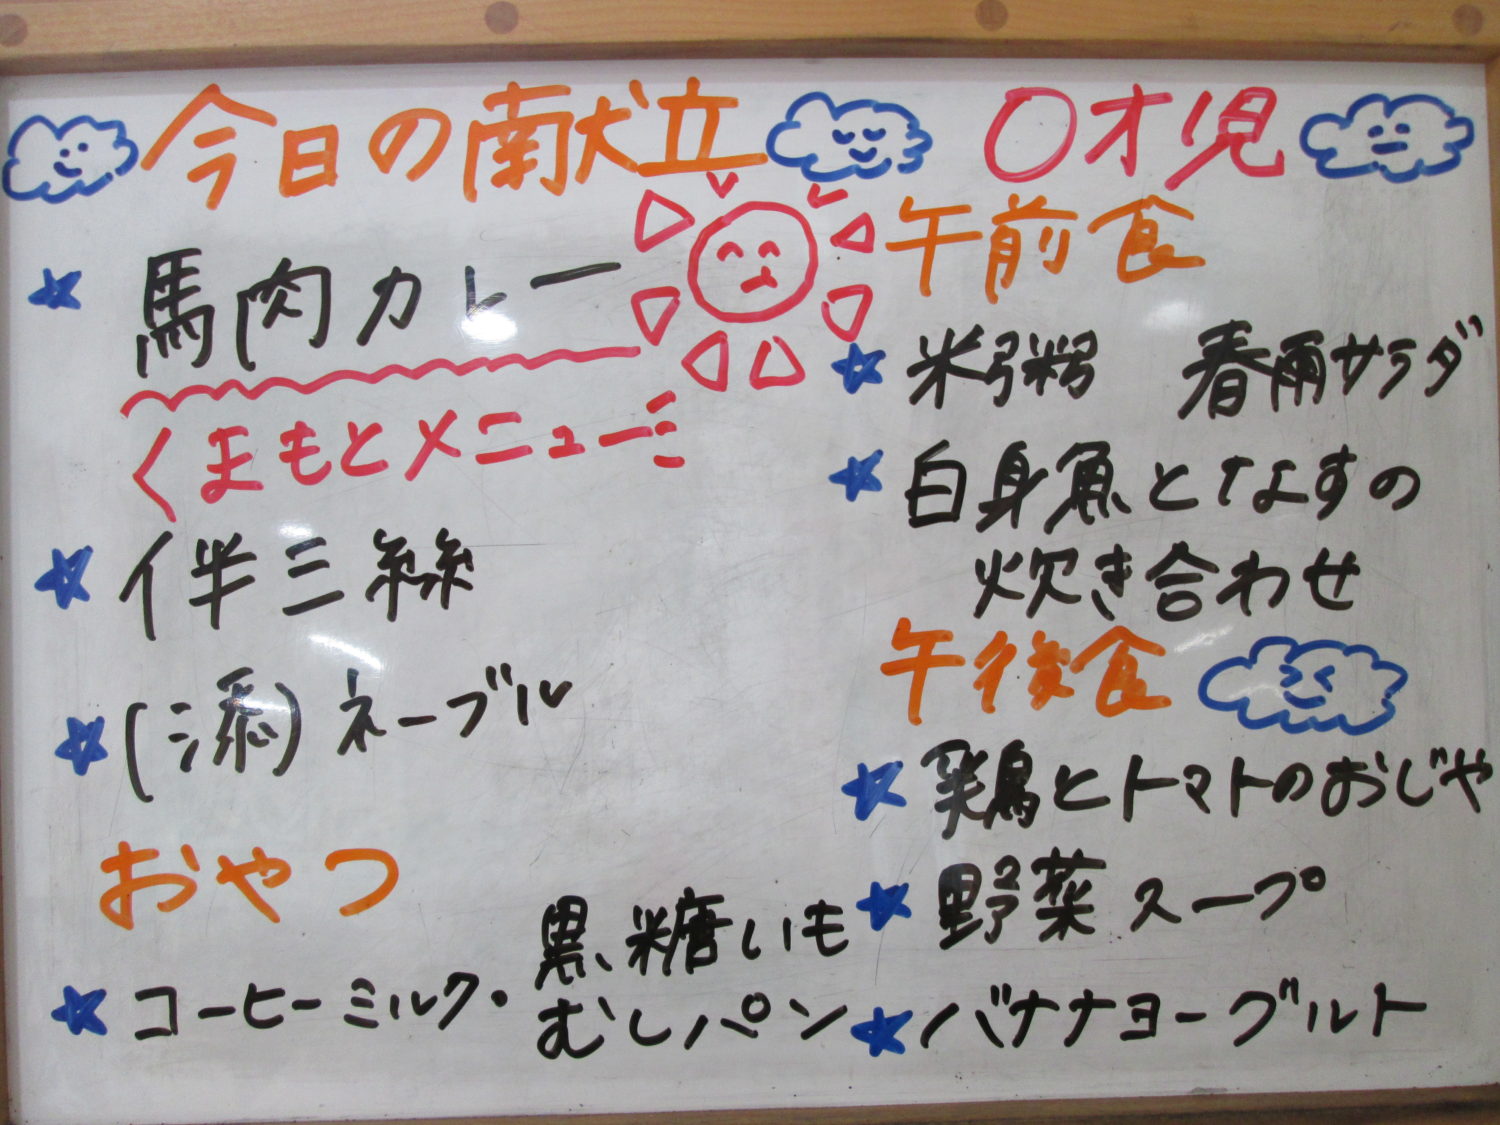 今日の献立
馬肉カレー
くまもとメニュー
伴三絲
(添)ネーブル
おやつ
コーヒーミルク・黒糖いも
むしパン
〇才児
午前食
米粥 春雨サラダ
白身魚となすの
炊き合わせ
午後食
鶏とトマトのおじや
野菜スープ
バナナヨーグルト